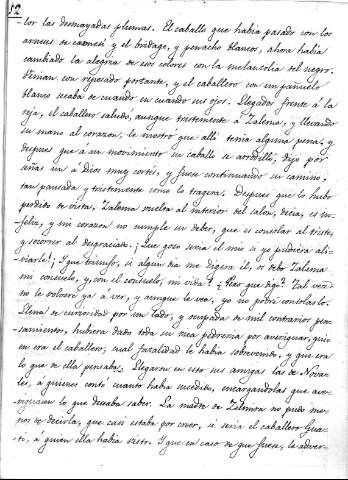 52
-lor las desmayadas plumas. El caballo que habia pasado con los
arneses de carmesí y el bridage, y penacho blancos, ahora habia
cambiado la alegria de sus colores con la melancolía del negro.
Venian con reposado portante, y el caballero con un pañuelo
blanco secaba de cuando en cuando sus ojos. Llegados frente á la
reja, el caballero saludó, aunque tristemente á Zalema, y llevando
su mano al corazon, le mostró que alli tenia alguna pena; y
despues que á un movimiento su caballo se arrodilló, dijo por
señas un á Dios muy cortés, y fuese continuando su camino,
tan pausada y tristemente como lo tragera. Despues que lo hubo
perdido de vista, Zalema vuelta al interior del salon, decia, es in-
feliz, y mi corazon no cumple su deber, que es consolar al triste,
y socorrer al desgraciado. ¡Que gozo seria el mio si yo pudiera ali-
viarle! ¡Y que triunfo, si algun dia me digera él, os debo Zalema
mi consuelo, y, con el consuelo, mi vida! ¿Pero que digo? Tal vez
no le volveré ya á ver, y aunque le vea, yo no podré consolarlo.
Llena de curiosidad por un lado, y ocupada de mil contrarios pen-
samientos, hubiera dado toda su rica pedreria por averiguar, quien
era el caballero, cual fatalidad le habia sobrevenido, y que era
lo que de ella pensaba. Llegaron en esto sus amigas las de Nova-
les, á quienes contó cuanto habia sucedido, encargandolas que ave-
riguasen lo que deseaba saber. La madre de no pudo me-
nos de decirla, que casi estaba por creer, si seria el caballero
á quien ella habia visto. Y que en caso de que fuese, le adver-